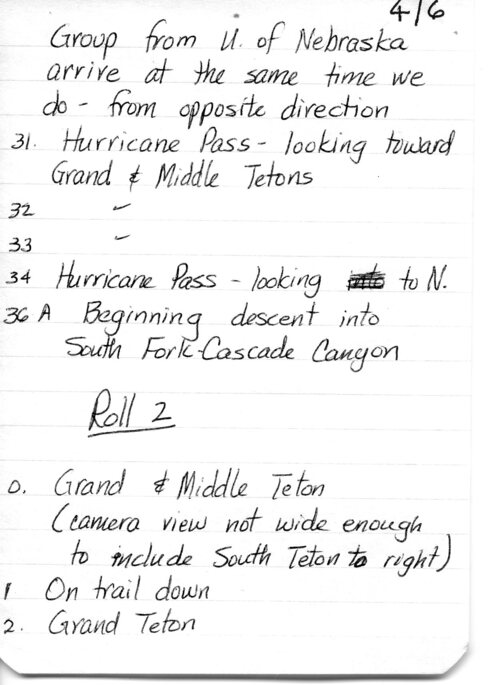 4/6
Group from U. of Nebraska
arrive at the same time we
do - from opposite direction
31. Hurricane Pass - looking toward
Grand & Middle Tetons
32 〃
33 〃
34 Hurricane Pass - looking to N.
36 A Beginning descent into
South Fork-Cascade Canyon
Roll 2
0. Grand & Middle Teton
(camera view not wide enough
to include South Teton to right)
1 On trail down
2. Grand Teton